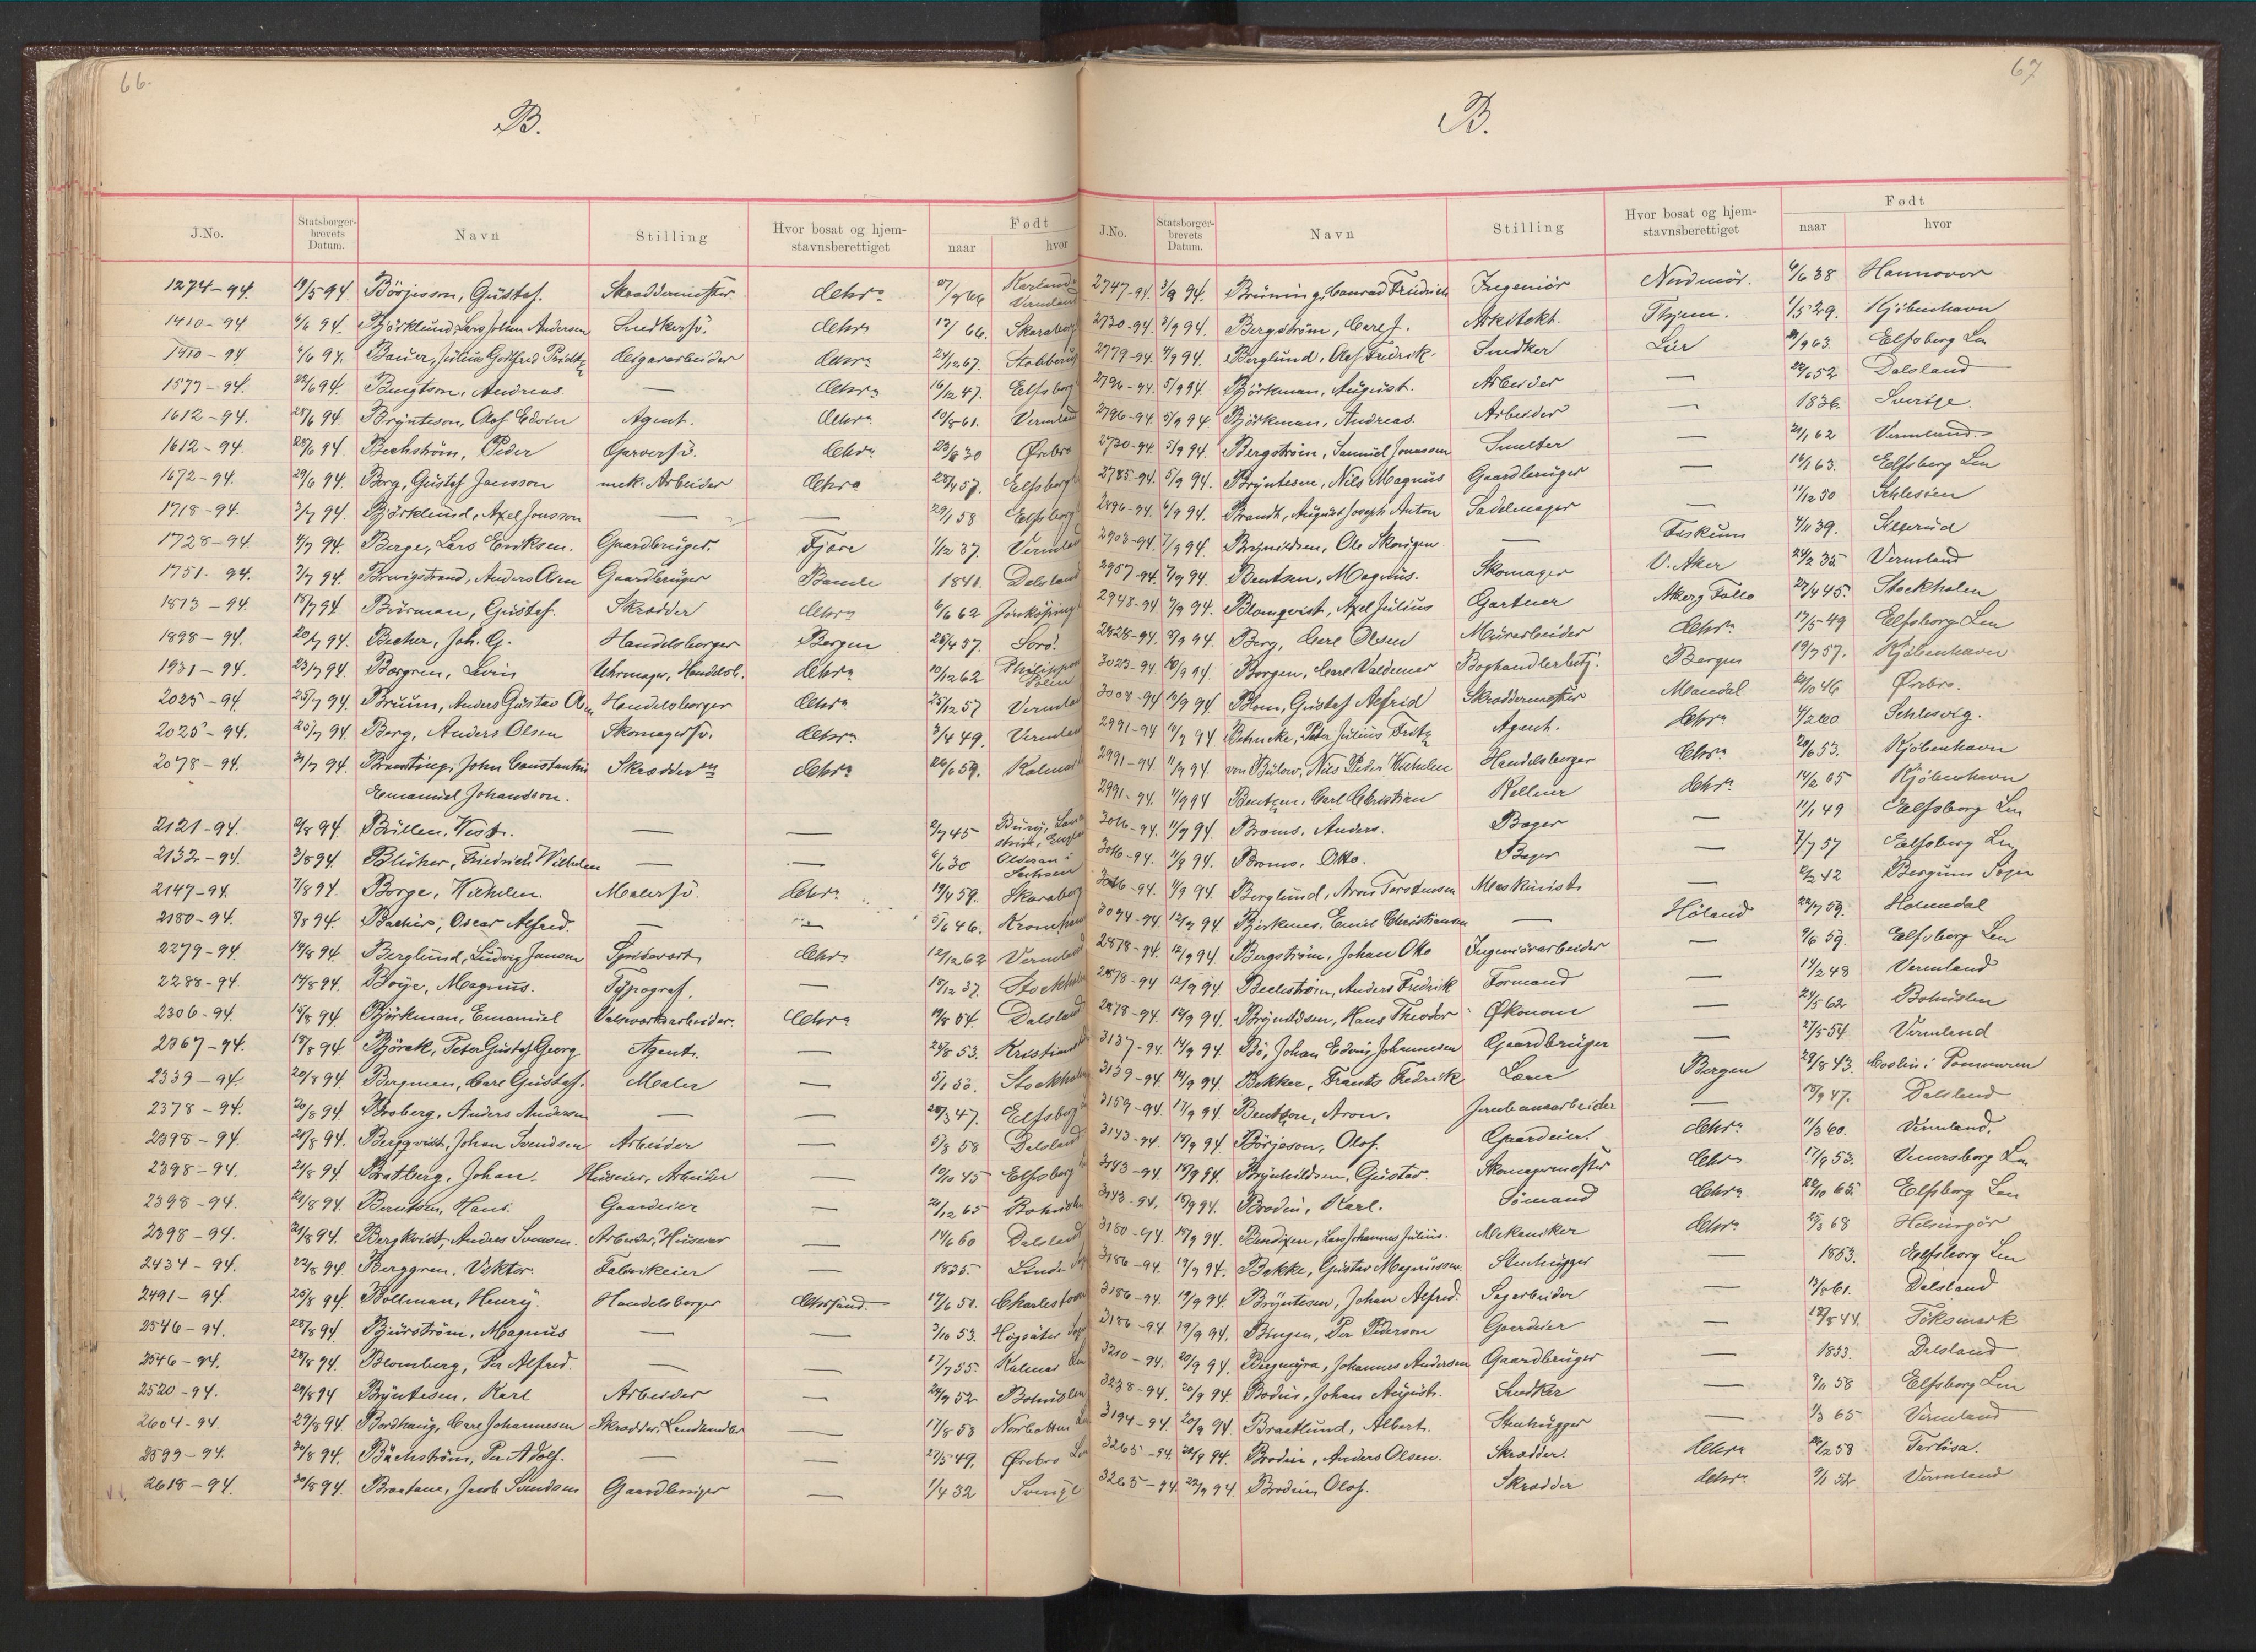 66.
B.
J.No. Statsborger-brevets Datum. Navn Stilling Hvor bosat og hjem-stavnsberettiget Født naar hvor
1274-94. 19/5 94. Börjesson, Gustaf. Skræddermester Chra
1410-94 6/6 94. Björklund, Lars Johan Andersen Snedkersv. Chra 66. Skaraborg
1410-94 6/6 94. Bauer, Julius Gottfred Cigararbeider Chra 24/12 67.
1577-94. 22/6 94. Bengtson, Andreas. — Chra 16/12 47. Elfsborg
1612-94. 28/6 94. Brynteson, Olof Edvin Agent. Chra 10/8 61. Vermland
1612-94. 28/6 94. Bechström, Peder Garversv. Chra 30 Örebro
1672-94. 29/6 94. Berg, Gustaf Jansson mek. Arbeider Chra 57. Elfsborg
1718-94. 3/7 94. Björklund, Axel Jonsson — — 29/1 58 Elfsborg
1728-94. 4/7 94. Berge, Lars Eriksen. Gaardbruger. Fjære 1/12 37. Vermland
1751-94. 7/7 94. Anders Olsen Gaardbruger Bamle 1841. Dalsland
1813-94. 18/7 94. Börman, Gustaf. Skrædder Chra 6/6 62 Jönköping
1898-94. 20/7 94. Becher, Joh. G. Handelsborger Bergen 28/4 57. Sorö.
1931-94. 23/7 94. Borgren, Levin Uhrmager, Handelsb. Chra 10/12 62
2025-94 25/7 94. Bruun, Anders Gustav Olsen Handelsborger Chra 25/12 57 Vermland
2025-94. 25/7 94. Berg, Anders Olsen Skomagersv. Chra 3/4 49. Vermland
2078-94. 31/7 94. Branting, John Constantin Skrædder Chra 26/6 59. Kalmar
Emanuel Johanson.
2121-94. 2/8 94. Büllen, — — 2/7 45 Bury,
2132-94. 3/8 94. Blücher, Friedrich Wilhelm — — 6/6 30 Sachsen
2147-94. 7/8 94. Borge, Wilhelm Malersv. Chra 19/4 59. Skaraborg
2180-94. 8/8 94. Oscar Alfred. — — 5/6 46.
2279-94. 14/8 94. Berglund, Ludvig Jansen Chra 12/12 62 Vermland
2288-94. 14/8 94. Böye, Magnus. Typograf. — 18/12 37. Stockholm
2306-94. 15/8 94. Björkman, Emanuel Valseværksarbeider. Chra 19/8 54. Dalsland
2367-94. 18/8 94. Peter Gustaf Georg Agent. — 24/8 53.
2339-94. 20/8 94. Bergman, Carl Gustaf. Maler — Stockholm
2378-94. 20/8 94. Broberg, Anders Andersen — — 47. Elfsborg
2398-94. 21/8 94. Bergqvist, Johan Svendsen Arbeider — 5/8 58 Dalsland
2398-94. 21/8 94. Bratberg, Johan. Husseier, Arbeider — 10/10 45 Elfsborg
2398-94. 21/8 94. Berntsen, Hans. Gaardeier — 21/12 65
2398-94. 21/8 94. Bergkvist, Anders Svensen. Arbeider, Husseier — 14/6 60 Dalsland
2434-94. 22/8 94. Berggren, Viktor. Fabrikeier — 1835. Linde
2491-94. 25/8 94. Bollman, Henry. Handelsborger Chrsand. 17/6 51. Charlestown
2546-94. 28/8 94. Bjurström, Magnus — — 3/10 53. Högsäter
2546-94. 28/8 94. Blomberg, Per Alfred. — — 17/7 55. Kalmar
2520-94. 29/8 94 Bryntesen, Karl Arbeider — 24/9 52
2604-94. 29/8 94. Bordhaug, Carl Johannesen Skrædder, Landhandler — 17/8 53 Norbotten
2599-94. 30/8 94. Bächström, Per Adolf. — — 27/5 49. Örebro
2618-94. 30/8 94. Braatane, Jacob Svendsen Gaardbruger — 1/4 32 Sverige
67
B.
J.No. Statsborger-brevets Datum. Navn Stilling Hvor bosat og hjem-stavnsberettiget Født naar hvor
2747-94. 3/9 94. Brüning, Conrad Friedrich Ingeniör Nordmör. 6/6 38 Hannover
2730-94. 3/9 94. Bergström, Carl J. Arkitekt. 1/5 29. Kjöbenhavn
2779-94. 4/9 94. Berglund, Olof Fredrik. Snedker Lier 63. Elfsborg Len
2796-94. 5/9 94. Björkman, August. Arbeider — 22/6 52 Dalsland
2796-94. 5/9 94. Björkman, Andreas. Arbeider — 1836. Sverige.
2730-94. 5/9 94. Bergström, Samuel Jonassen Smelter — 21/1 62 Vermland.
2785-94. 5/9 94. Bryntesen, Nils Magnus Gaardbruger — 16/1 63. Elfsborg Len
2896-94. 6/9 94. Brandt, August Joseph Anton Sadelmager — 11/12 50 Schlesien
2903-94. 7/9 94. Brynildsen, Ole Skougen — Fiskum 4/11 39.
2957-94. 7/9 94. Bentsen, Magnus. Skomager V. Aker 24/2 35 Vermland
2948-94 7/9 94. Blomqvist, Axel Julius Gartner Akerg Follo 27/4 45. Stockholm
2828-94. 8/9 94. Berg, Carl Olsen Murarbeider Chra 17/5 49 Elfsborg Len
3023-94 10/9 94. Borgen, Carl Valdemar Boghandlerbetj. Bergen 19/7 57. Kjöbenhavn
3008-94 10/9 94. Blom, Gustaf Alfrid Skræddermester Mandal 20/10 46 Örebro.
2991-94 94. Behncke, Peter Julius Fritz Agent. Chra Schlesvig.
2991-94. 11/9 94 von Bülow, Nils Peder Wilhelm Handelsborger Chra 20/6 53. Kjöbenhavn
2991-94. 11/9 94 Bentzen, Carl Christian Kellner Chra 14/2 65 Kjöbenhavn
3016-94. 11/9 94. Broms, Anders. Bager — 11/1 49 Elfsborg Len
3016-94. 11/9 94. Broms, Otto. Bager — 7/7 57 Elfsborg Len
3016-94. 11/9 94. Berglund, Aron Torstensen Maskinist — 42 Bergum Sogn
3094-94. 12/9 94. Birkenes, Emil Christiansen — Höland 22/7 59.
2878-94. 12/9 94. Bergström, Johan Otto Ingeniörarbeider — 9/6 59. Elfsborg Len
2878-94. 12/9 94. Bechström, Anders Fredrik Formand — 14/2 48 Vermland
2878-94. 12/9 94. Bryndldsen, Hans Theodor Økonom — 24/5 62 Bohuslen
3137-94 14/9 94. Bö, Johan Edvin Johannesen Gaardbruger — 27/5 54. Vermland
3139-94. 14/9 94. Bekker, Frants Fredrik Lærer Bergen 29/8 43. Coslin i Pommeren
3159-94. 17/9 94. Bentzon, Aron. Jernbanearbeider — 18/9 47. Dalsland
3143-94. 18/9 94. Börjeson, Olof. Gaardeier. Chra 11/3 60. Vermland.
3143-94 18/9 94. Brynhildsen, Gustav. Skomagermester Chra 17/9 53. Venersborg Len
3143-94. 18/9 94. Brodin, Karl. Sömand Chra 22/10 65. Elfsborg Len
3180-94. 18/9 94. Bendixen, Lars Johannes Julius. Mekaniker Chra 68 Helsingör
3186-94. 19/9 94. Bekke, Gustav Magnussen. Stenhugger — 1853. Elfsborg Len
3186-94. 19/9 94. Bryntesen, Johan Alfred. Sagarbeider — 13/8 61. Dalsland
3186-94. 19/9 94. Bingen, Per Pederson Gaardeier — 18/8 44. Töksmark
3210-94. 20/9 94. Bergmyra, Johannes Andersen Gaardbruger — 1833. Dalsland
3238-94. 20/9 94. Bodin, Johan August. Snedker — 8/11 58 Elfsborg Len
3194-94. 20/9 94. Braatlund, Albert. Stenhugger — 1/3 65 Vermland
3265-94. 22/9 94. Brodin, Anders Olsen. Skrædder. Chra 58 Farlösa.
3265-94. 22/9 94. Brodin, Olof. Skrædder Chra 9/1 52 Vermland